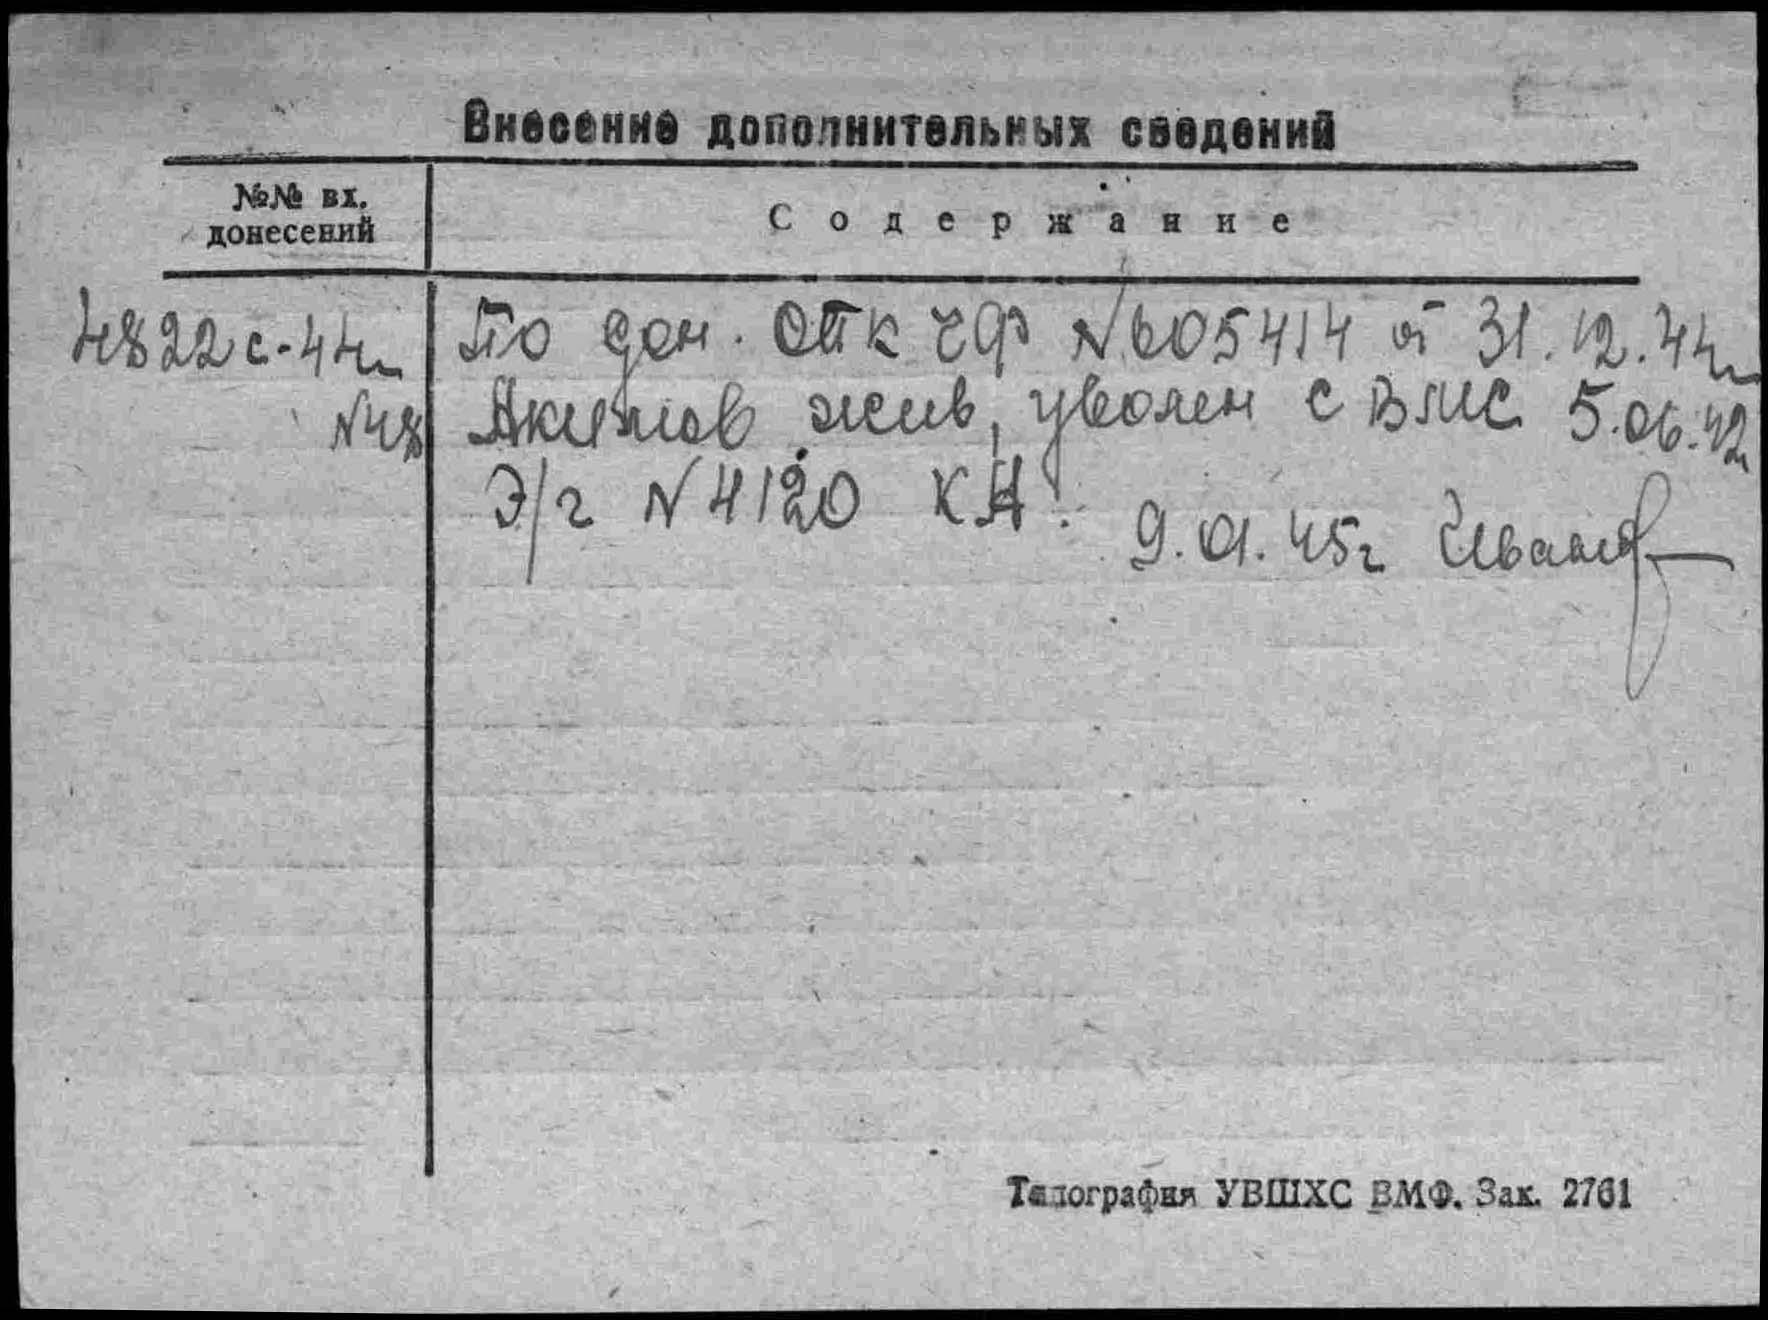 Внесение дополнительных сведений
№№ вх.
донесений
Содержание
4822с-44г
По дон. ОПК ЧФ №605414 от 31.12.44г
N48
Акимов жив, уволен с ВМС 5.06.42г
Э/г N4120 КА.
9.01.45г Иванов
Типография УВШХС ВМФ. Зак. 2761